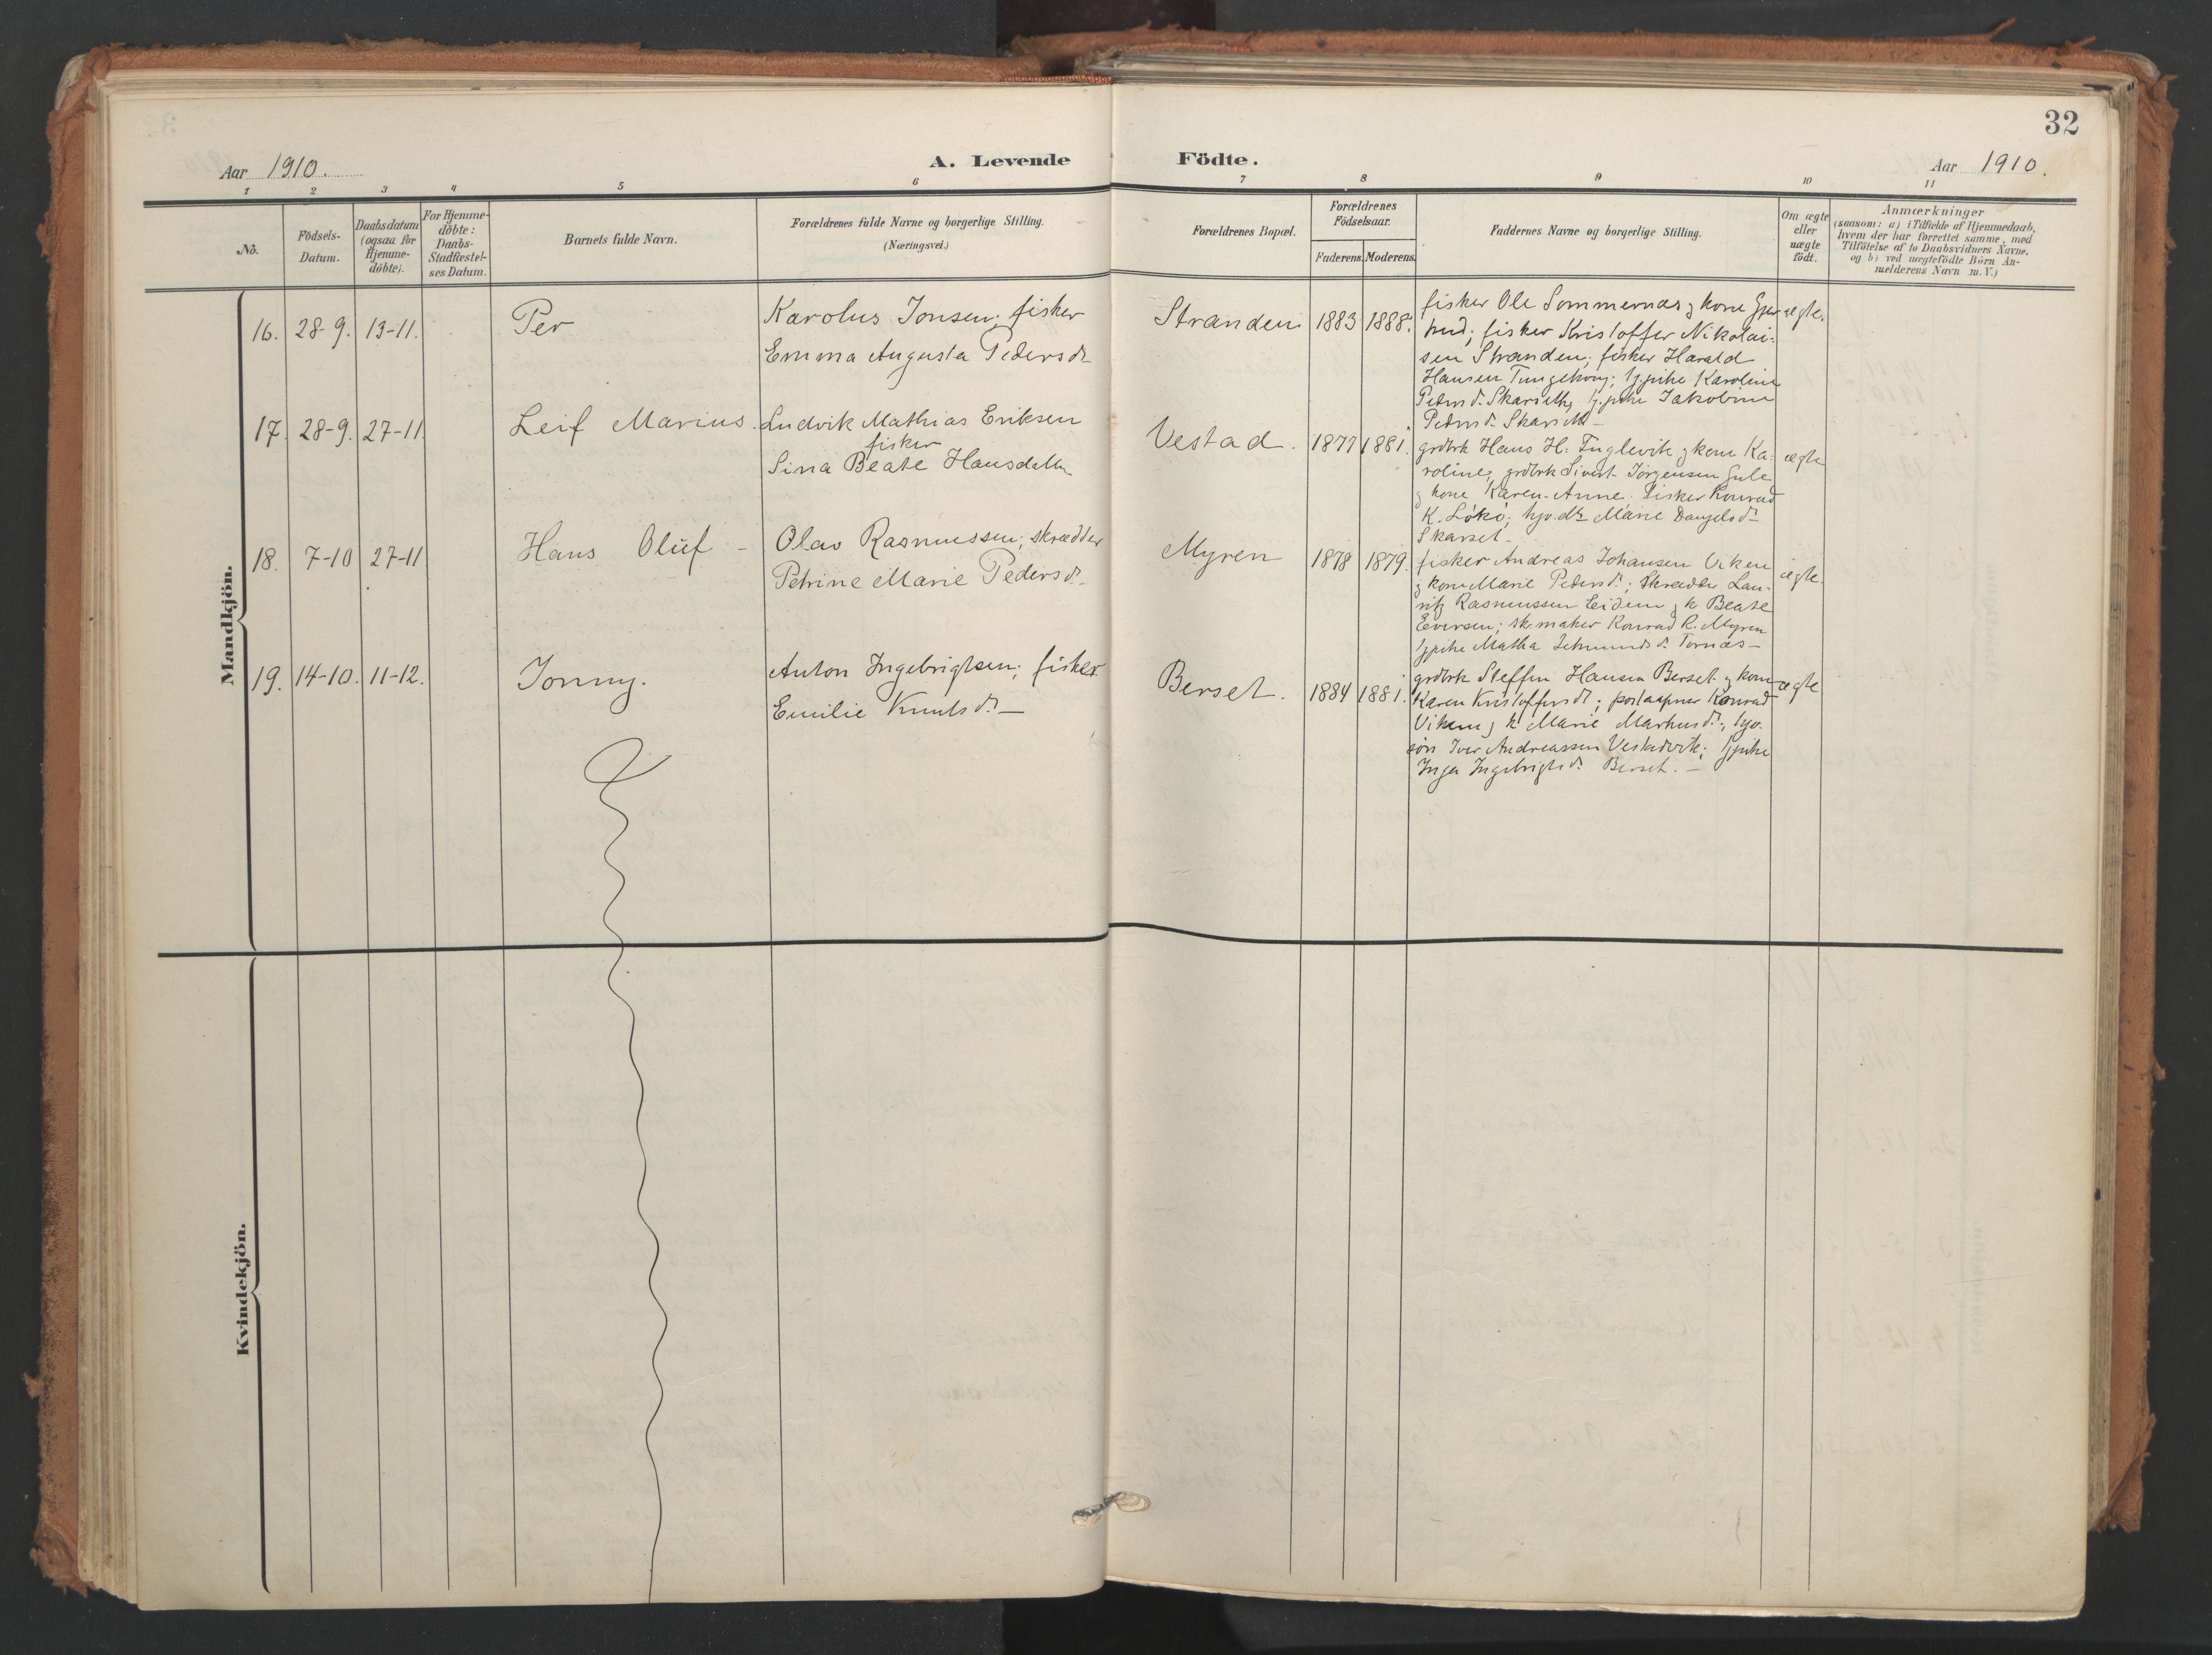 32
Aar 1910.
A. Levende Födte.
Aar 1910.
1 2 3 4 5 6 7 8 9 10 11
No.
Födsels-
Datum.
Daabsdatum
(ogsaa for
Hjemme-
döbte).
For Hjemme-
döbte:
Daabs-
Stadfæstel-
ses Datum.
Barnets fulde Navn.
Forældrenes fulde Navne og borgerlige Stilling.
(Næringsvei.)
Forældrenes Bopæl.
Forældrenes
Födselsaar.
Faderens. Moderens.
Faddernes Navne og borgerlige Stilling.
Om ægte
eller
uægte
födt.
Anmærkninger
(saasom: a) i Tilfælde af Hjemmedaab,
hvem der har forrettet samme, med
Tilföielse af to Daabsvidners Navne,
og b) ved uægtefödte Börn An-
melderens Navn m. V.)
Mandkjön.
16. 28-9. 13-11.
Per
Karolus Jonsen; fisker
Emma Augusta Pedersdr
Stranden 1883 1888.
fisker Ole Sommernæs & kone
fisker Kristoffer Nikolai-
sen Stranden; fisker Harald
Hansen; gpike Karoline
Pedersdr. gpike Jakobine
Pedersdr.
ægte.
17. 28-9. 27-11.
Leif Marius.
Ludvik Mathias Eriksen
fisker
Sina Beate Hansdatter
Vestad. 1877 1881.
grdbrk Hans H. Fuglevik & kone Ka-
roline; grdbrk Sivert Jørgensen Gule
& kone Karen-Anne. fisker Konrad
K. Løkø; Marie
Skarset.
ægte
18. 7-10 27-11
Hans Oluf -
Olav Rasmussen; skrædder
Petrine Marie Pedersdr.
Myren 1878 1879.
fisker Andreas Johansen Viken
& kone Marie Pedersdr.; Skrædder Lau-
ritz Rasmussen Eidem & k Beate
Eversen; sk.maker Konrad R. Myren
gpike Tornæs -
ægte.
19. 14-10. 11-12.
Jonny.
Anton Ingebrigtsen; fisker
Emilie Knutsdr. -
Berset. 1884 1881.
grdbrk Steffen Hansen Berset & kone
Karen Kristoffersdr; postaapner Konrad
Viken & k Marie Markusdr.;
søn Iver Andreassen Vestadvik; gpike
Inga Ingebrigtsdr. Berset. -
ægte
Kvindekjön.